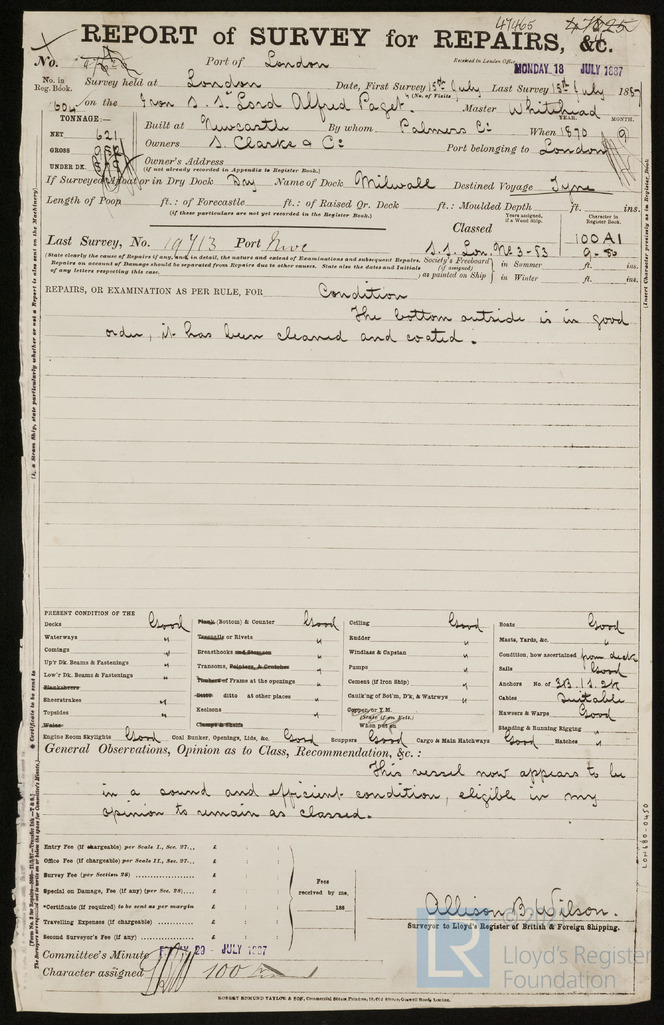 47465
REPORT of SURVEY for REPAIRS, &c.
No. Port of London Received in London Office MONDAY 18 JULY 1887
No. in Reg. Book. Survey held at London Date, First Survey 15th July Last Survey 18th July 1887
(No. of Visits)
604 on the Iron S.S. "Lord Alfred Paget" Master Whitehead
TONNAGE:— YEAR. MONTH.
NET 621 Built at Newcastle By whom Palmers Co. When 1870 9
GROSS Owners S. Clarke & Co. Port belonging to London
UNDER DK. Owner's Address
(if not already recorded in Appendix to Register Book.)
If Surveyed Afloat or in Dry Dock Dry Name of Dock Milwall Destined Voyage Tyne
Length of Poop ft.: of Forecastle ft.: of Raised Qr. Deck ft.: Moulded Depth ft. ins.
(if these particulars are not yet recorded in the Register Book.) Years assigned, if a Wood Ship. Character in Register Book.
Classed 100A1
Last Survey, No. 19713 Port S.S. Lon. No 3-83
(State clearly the cause of Repairs if any, and, in detail, the nature and extent of Examinations and subsequent Repairs. Society's Freeboard in Summer ft. ins.
Repairs on account of Damage should be separated from Repairs due to other causes. State also the dates and Initials (if assigned)
of any letters respecting this case.) as painted on Ship in Winter ft. ins.
REPAIRS, OR EXAMINATION AS PER RULE, FOR Condition
The bottom outside is in good
order, it has been cleaned and coated.
PRESENT CONDITION OF THE
Decks Good Plank (Bottom) & Counter Good Ceiling Good Boats Good
Waterways " Treenails or Rivets " Rudder " Masts, Yards, &c. "
Comings " Breasthooks and Stemson " Windlass & Capstan " Condition, how ascertained from deck
Up'r Dk. Beams & Fastenings " Transoms, Pointers, & Crutches " Pumps " Sails Good
Low'r Dk. Beams & Fastenings " Timbers of Frame at the openings " Cement (if Iron Ship) " Anchors No. of 3B.1S.2K
Planksheers Ditto ditto at other places " Caulk'ng of Bot'm, D'k, & Watrwys " Cables Suitable
Sheerstrakes " Keelsons " Copper, or Y.M. Hawsers & Warps Good
Topsides " Clamps & Shelfs (State if on Felt.) Standing & Running Rigging "
Wales When put on
Engine Room Skylights Good Coal Bunker, Openings, Lids, &c. Good Scuppers Good Cargo & Main Hatchways Good Hatches "
General Observations, Opinion as to Class, Recommendation, &c.:
This vessel now appears to be
in a sound and efficient condition, eligible in my
opinion to remain as classed.
Entry Fee (if chargeable) per Scale I., Sec. 27... £
Office Fee (if chargeable) per Scale II., Sec. 27... £
Survey Fee (per Section 28) £
Special on Damage, Fee (if any) (per Sec. 28) £
*Certificate (if required) to be sent as per margin £
Travelling Expenses (if chargeable) £
Second Surveyor's Fee (if any) £
Fees received by me, 188
Allison B. Wilson.
Surveyor to Lloyd's Register of British & Foreign Shipping.
Committee's Minute 29 - JULY 1887
Character assigned 100
ROBERT EDMUND TAYLOR & SON, Commercial Steam Printers, 19, Old Street, Goswell Road, London.
LON680-0450
LR
Lloyd's Register
Foundation